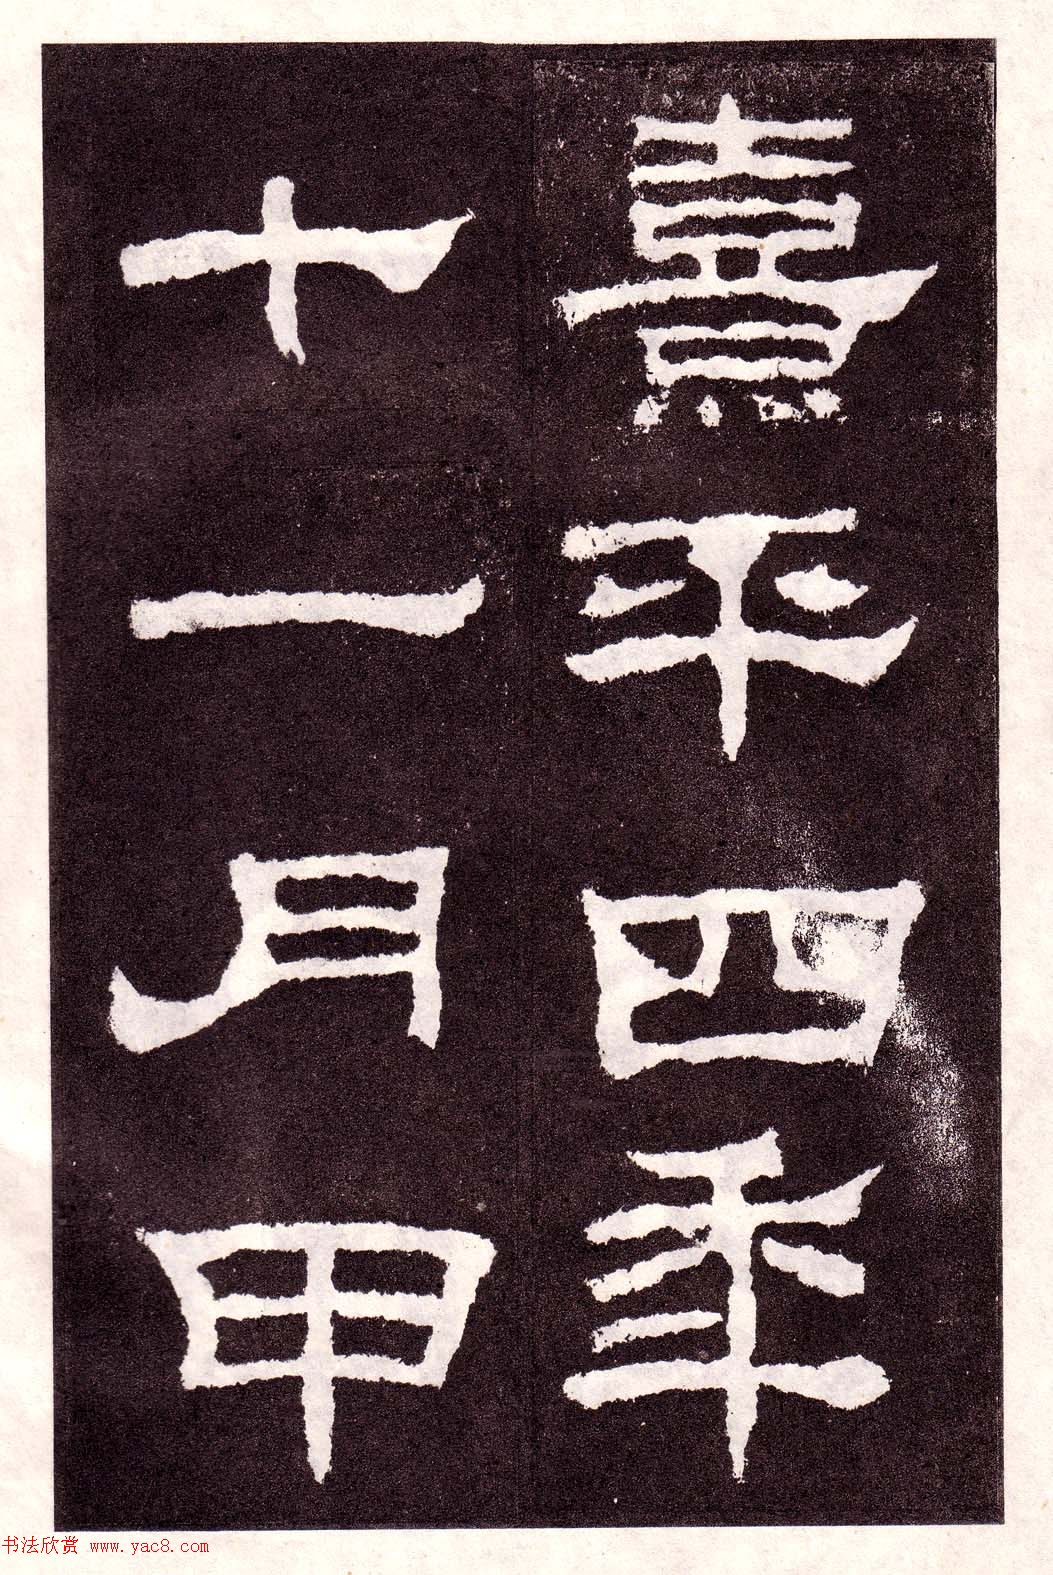 熹平四年
十一月甲
书法欣赏 www.yac8.com